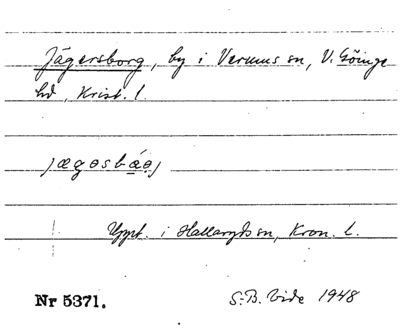 Jägersborg, by i Verums sn, V. Göinge
hd, Krist. l.
jægəsbáəj
Uppt. i Hallaryds sn, Kron. l.
Nr 5371. S.-B. Vide 1948